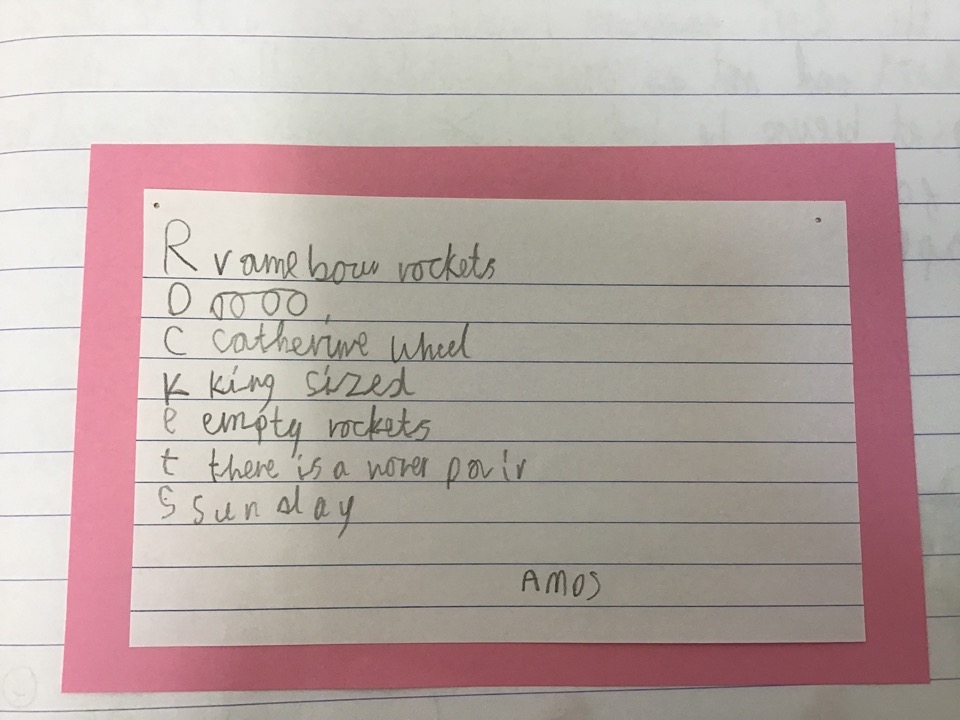 R ramebow rockets
O oooo,
C catherine wheel
K king sized
e empty rockets
t there is a nover pair
S Sunday
AMOS